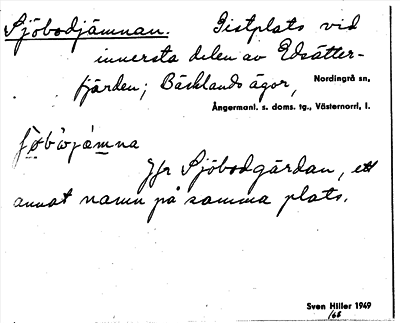 Sjöbodjämnan. Fistplats vid
innersta delen av Edsätter-
fjärden; Bäcklands ägor, Nordingrå sn,
Ångermanl. s. doms. tg., Västernorrl. l.
Jfr Sjöbodgärdan, ett
annat namn på samma plats.
Sven Hiller 1949